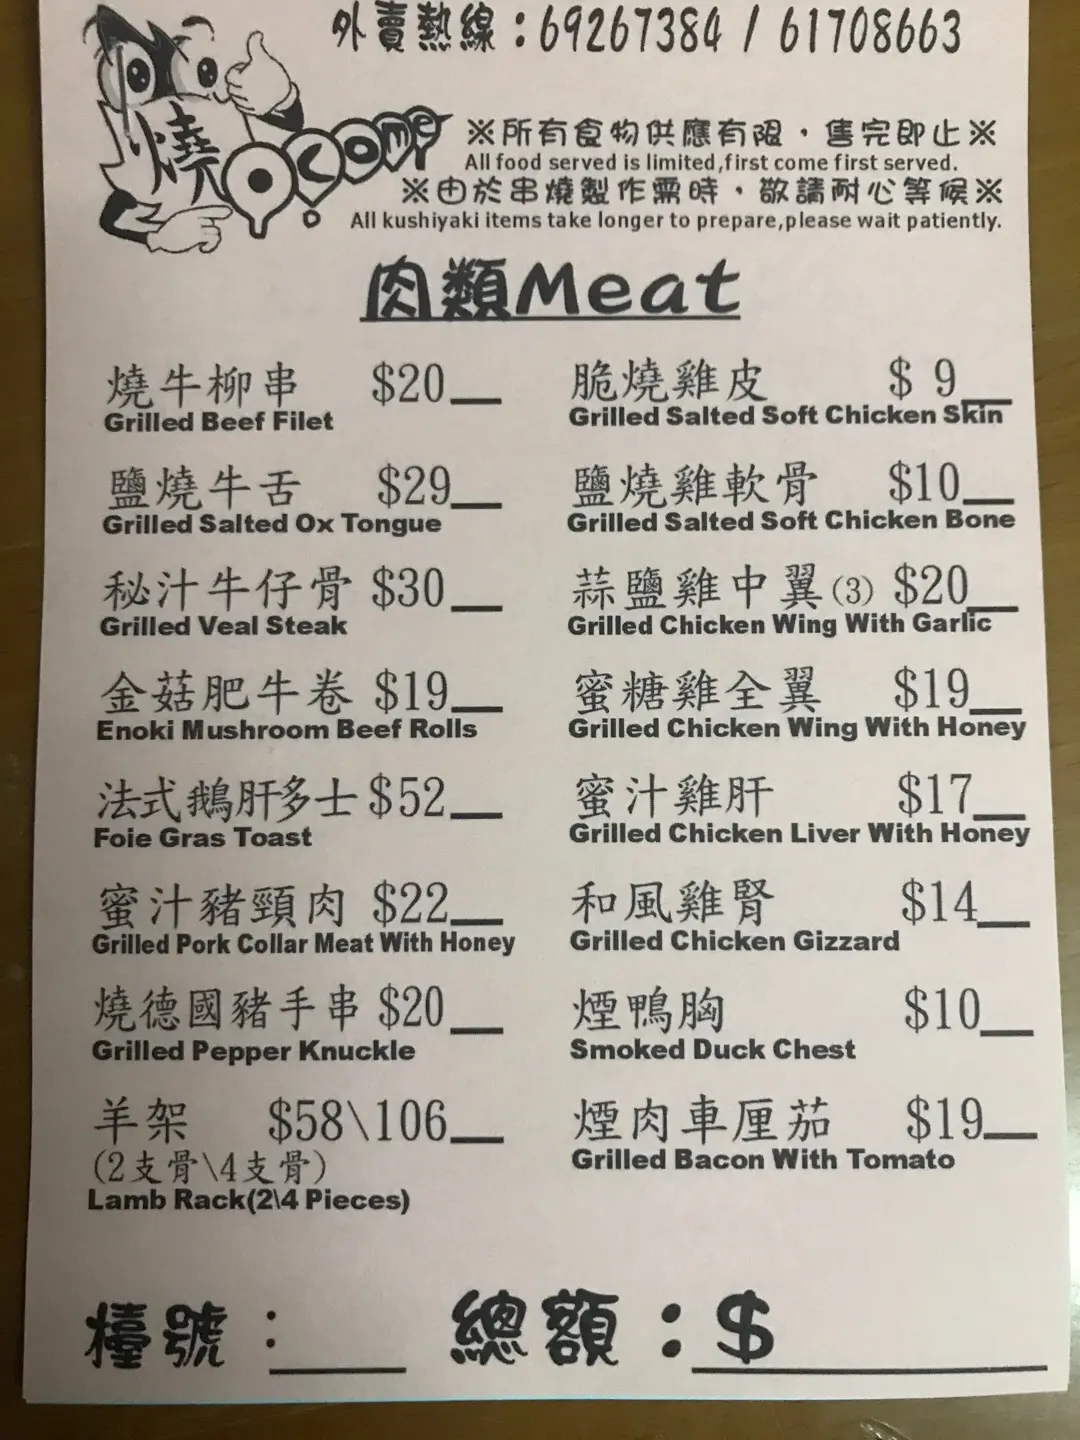 外賣熱線：69267384 / 61708663
燒 ocome
※所有食物供應有限，售完即止※
All food served is limited,first come first served.
※由於串燒製作需時，敬請耐心等候※
All kushiyaki items take longer to prepare,please wait patiently.
肉類Meat
燒牛柳串 $20__
Grilled Beef Filet
脆燒雞皮 $ 9__
Grilled Salted Soft Chicken Skin
鹽燒牛舌 $29__
Grilled Salted Ox Tongue
鹽燒雞軟骨 $10__
Grilled Salted Soft Chicken Bone
秘汁牛仔骨 $30__
Grilled Veal Steak
蒜鹽雞中翼(3) $20__
Grilled Chicken Wing With Garlic
金菇肥牛卷 $19__
Enoki Mushroom Beef Rolls
蜜糖雞全翼 $19__
Grilled Chicken Wing With Honey
法式鵝肝多士 $52__
Foie Gras Toast
蜜汁雞肝 $17__
Grilled Chicken Liver With Honey
蜜汁豬頸肉 $22__
Grilled Pork Collar Meat With Honey
和風雞腎 $14__
Grilled Chicken Gizzard
燒德國豬手串 $20__
Grilled Pepper Knuckle
煙鴨胸 $10__
Smoked Duck Chest
羊架 $58\106__
(2支骨\4支骨)
Lamb Rack(2\4 Pieces)
煙肉車厘茄 $19__
Grilled Bacon With Tomato
檯號：____ 總額：$________